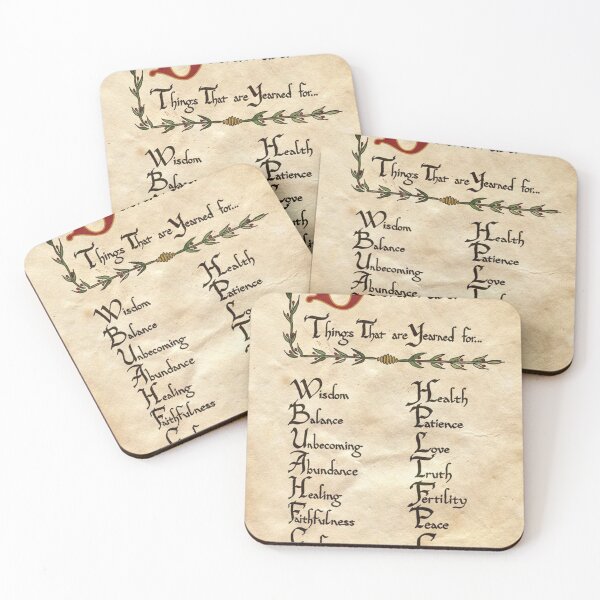 Things That are Yearned for...
Wisdom
Bala
Health
Patience
Love
Things That are Yearned for...
Wisdom
Balance
Unbecoming
Abundance
Health
Patience
Things That are Yearned for...
Wisdom
Balance
Unbecoming
Abundance
Healing
Faithfulness
Health
Things That are Yearned for...
Wisdom
Balance
Unbecoming
Abundance
Healing
Faithfulness
Health
Patience
Love
Truth
Fertility
Peace